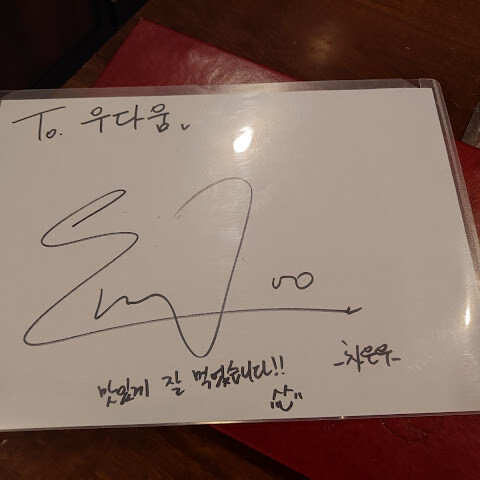 To. 우다움
맛있게 잘 먹었습니다!!
-차은우-